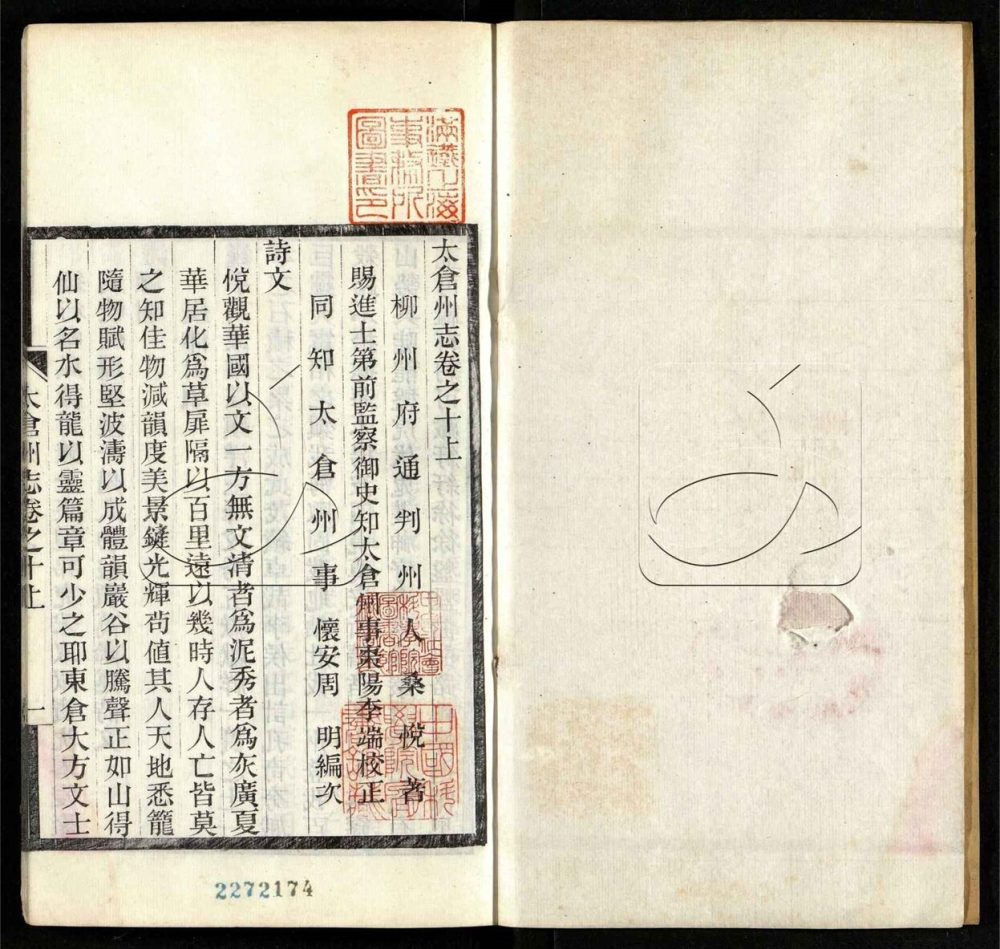 太倉州志卷之十上
柳州府通判州人桑悅著
賜進士第前監察御史知太倉州事棗陽李端校正
同知太倉州事懷安周明編次
詩文
悅觀華國以文一方無文清者爲泥秀者爲灰廣夏
華居化爲草扉隔以百里遠以幾時人存人亡皆莫
之知佳物減韻度美景鏈光輝苟值其人天地悉籠
隨物賦形堅波濤以成體韻巖谷以騰聲正如山得
仙以名水得龍以靈篇章可少之耶東倉大方文士
太倉州志卷之十上
一
滿鐵上海
事務所
圖書印
2272174